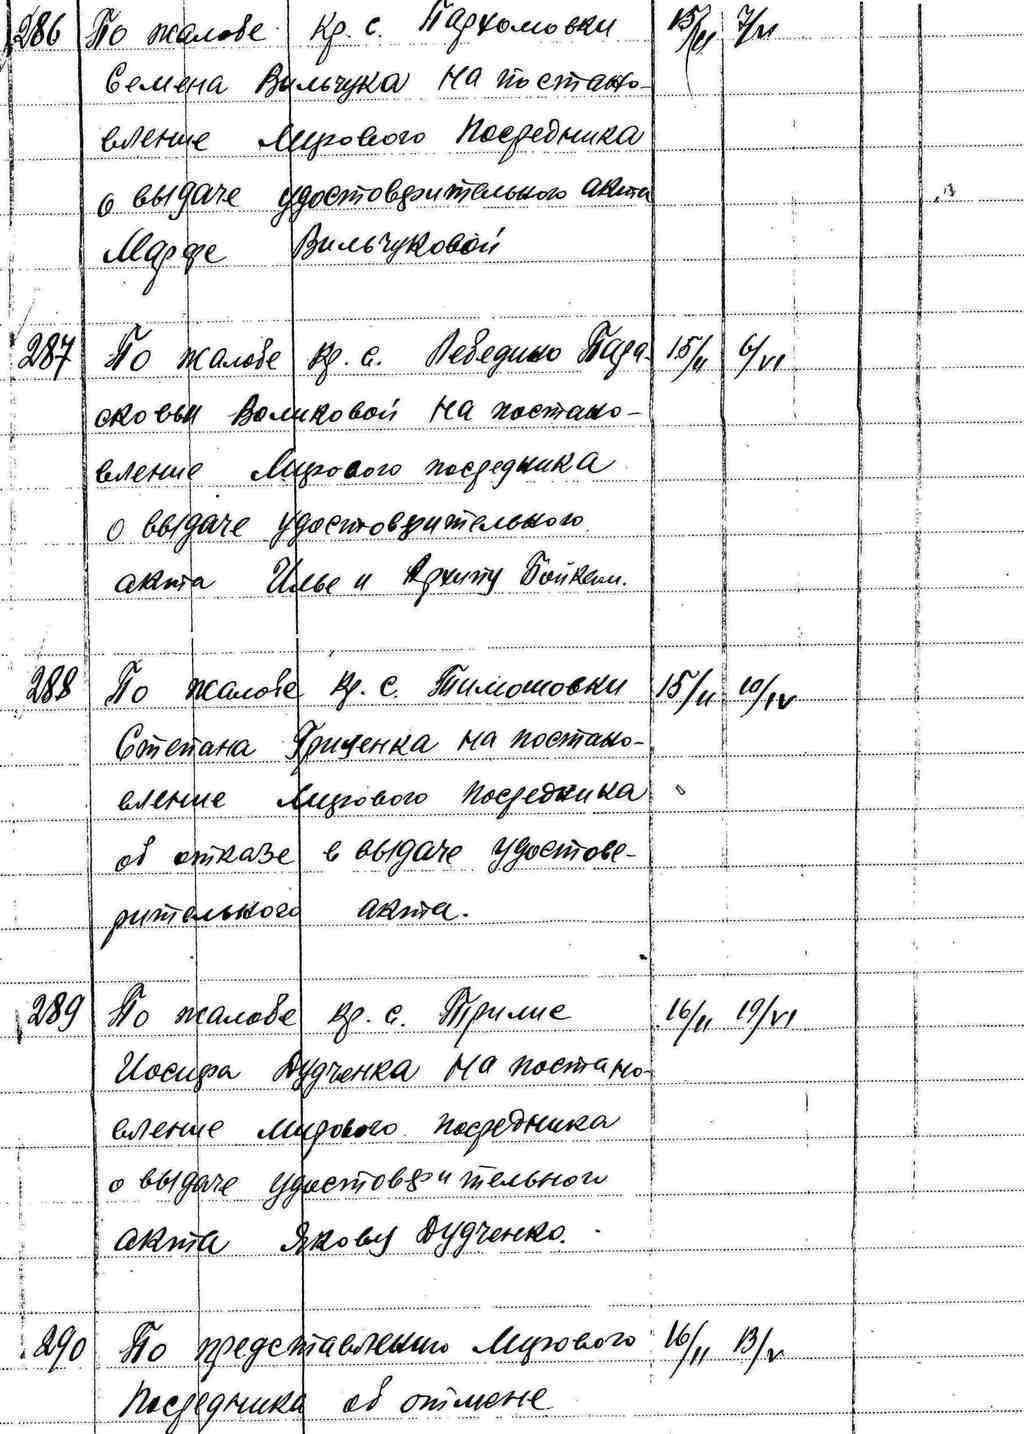 286 По жалобе кр. с. Пархомовки 15/II 7/VI
Семена Вильчука на постано-
вление Мирового Посредника
о выдаче удостоверительного акта
Марфе Вильчуковой
287 По жалобе кр. с. Лебедино Пара- 15/II 6/VI
сковьи Воликовой на постано-
вление Мирового посредника
о выдаче удостоверительного
акта Илье и Архипу Бойкам.
288 По жалобе кр. с. Тимошовки 15/II 10/IV
Степана Гриценка на постано-
вление Мирового посредника
об отказе в выдаче удостове-
рительного акта.
289 По жалобе кр. с. Трилис 16/II 19/VI
Иосифа Дудченка на постано-
вление мирового посредника
о выдаче удостоверительного
акта Якову Дудченко.
290 По представлению Мирового 16/II 13/V
Посредника об отмене